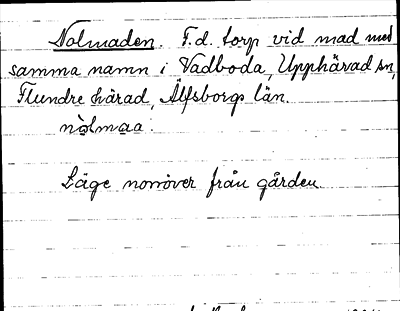 Nolmaden. F.d. torp vid mad med
samma namn i Vadboda, Upphärad sn,
Flundre härad, Älfsborgs län.
nòlmaa.
Läge norröver från gården